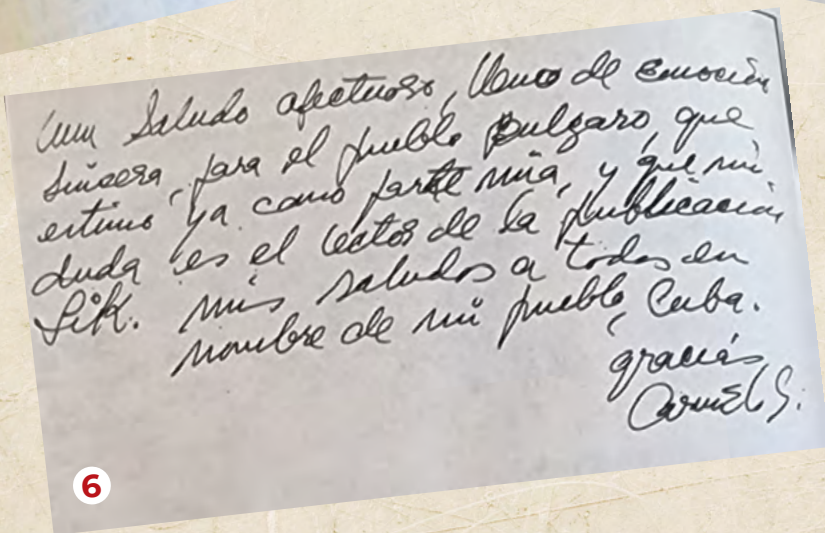 Un Saludo afectuoso, lleno de emoción
sincera, para el pueblo Bulgaro, que
estimo ya como parte mia, y que sin
duda es el lector de la publicación
Lik. Mis saludos a todos en
nombre de mi pueblo, Cuba.
gracias
6